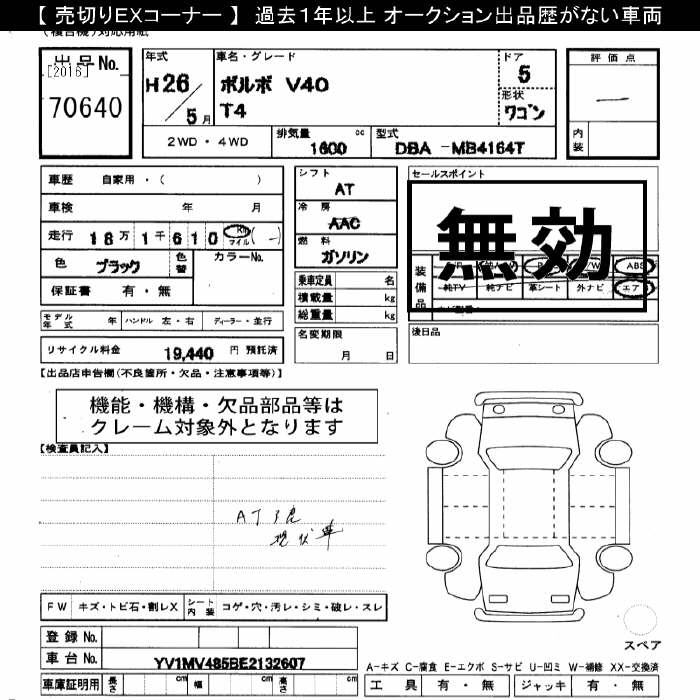 【 売切りEXコーナー 】 過去1年以上 オークション出品歴がない車両
出品No.
[2016]
70640
年式
H26/5月
車名・グレード
ボルボ V40
T4
ドア
5
形状
ワゴン
評価点
―
内装
2WD・4WD
排気量 cc
1600
型式
DBA -MB4164T
車歴 自家用・( )
車検 年 月
走行 18万1千610 Km マイル (-)
色 ブラック 色替 カラーNo.
保証書 有・無
シフト
AT
冷房
AAC
燃料
ガソリン
乗車定員 名
積載量 kg
総重量 kg
セールスポイント
無効
装備品
ABS
純TV 純ナビ 革シート 外ナビ エア
後日品
モデル年式 年 ハンドル 左・右 ディーラー・並行
リサイクル料金 19,440 円 預託済
名変期限
月 日
【出品店申告欄(不良箇所・欠品・注意事項等)】
機能・機構・欠品部品等は
クレーム対象外となります
【検査員記入】
AT不良
現状車
FW キズ・トビ石・割レX シート内装 コゲ・穴・汚レ・シミ・破レ・スレ
登録No.
車台No. YV1MV485BE2132607
車庫証明用 長さ cm 幅 cm 高さ cm
スペア
A-キズ C-腐食 E-エクボ S-サビ U-凹ミ W-補修 XX-交換済
工具 有・無 ジャッキ 有・無